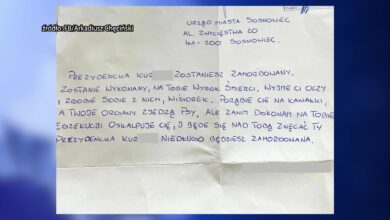 źródło: FB/Arkadiusz Chęciński
URZĄD MIASTA SOSNOWIEC
AL. ZWYCIĘSTWA 20
41-200 SOSNOWIEC.
PREZYDENCKA KUR ZOSTANIESZ ZAMORDOWANY.
ZOSTANIE WYKONANY, NA TOBIE WYROK ŚMIERCI, WYTNE CI OCZY
I ZROBIE SOBIE Z NICH, WISIOREK. PORĄBIE CIE NA KAWAŁKI,
A TWOJE ORGANY ZJEDZĄ PSY, ALE ZANIM DOKONAM NA TOBIE
EGZEKUCJI OSKALPUJE CIĘ, I BĘDE SIĘ NAD TOBĄ ZNĘCAĆ TY
PREZYDENCKA KUR NIEDŁUGO BĘDZIESZ ZAMORDOWANA.